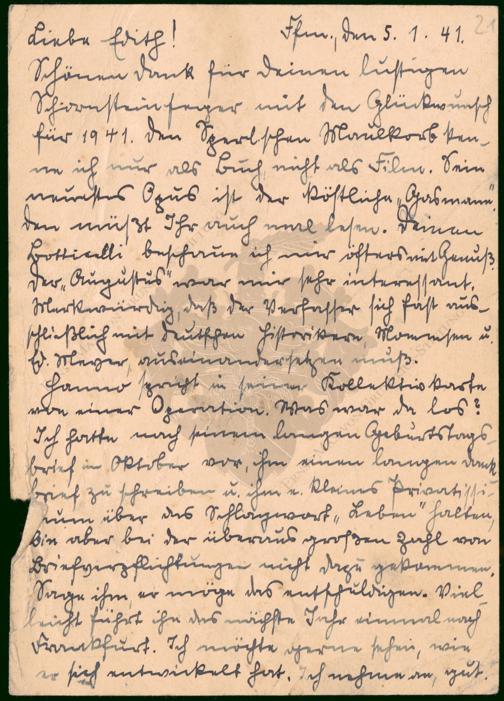 Ffm., den 5. 1. 41. 21
Liebe Edith!
Schönen Dank für Deinen lustigen
Schornsteinfeger mit den Glückwunsch
für 1941. Den Spoerlschen Maulkorb ken-
ne ich nur als Buch, nicht als Film. Sein
neuestes Opus ist der köstliche „Gasmann“,
den müßt Ihr auch mal lesen. Deinen
Botticelli beschaue ich mir öfters mit Genuß
Der „Augustus“ war mir sehr interessant.
Merkwürdig, daß der Verfasser sich fast aus-
schließlich mit deutschen Historikern, Mommsen u.
Ed. Meyer, auseinandersetzen muß.
Hanno spricht in seiner Kollektivkarte
von einer Operation. Was war da los?
Ich hatte nach seinem langen Geburtstags
brief im Oktober vor, ihm einen langen Dank
brief zu schreiben u. ihm e. kleines Privatissi-
mum über das Schlagwort „Leben“ halten,
bin aber bei der überaus großen Zahl von
Briefverpflichtungen nicht dazu gekommen.
Sage ihm, er möge das entschuldigen. Viel-
leicht führt ihn das nächste Jahr einmal nach
Frankfurt. Ich möchte gerne sehen, wie
er sich entwickelt hat. Ich nehme an, gut.